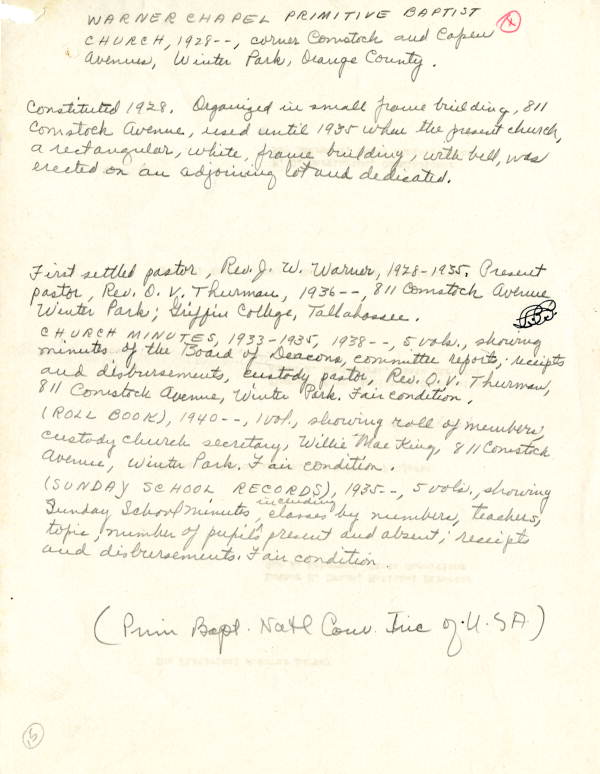 WARNER CHAPEL PRIMITIVE BAPTIST
CHURCH, 1928--, corner Comstock and Capen
Avenues, Winter Park, Orange County.
Constituted 1928. Organized in small frame building, 811
Comstock Avenue, used until 1935 when the present church,
a rectangular, white, frame building, with bell, was
erected on an adjoining lot and dedicated.
First settled pastor, Rev. J. W. Warner, 1928-1935. Present
pastor, Rev. O. V. Thurman, 1936--, 811 Comstock Avenue
Winter Park; Griffin College, Tallahossee.
CHURCH MINUTES, 1933-1935, 1938--, 5 vols., showing
minutes of the Board of Deacons, committee reports, reciepts
and disbursements, custody pastor, Rev. O. V. Thurman,
811 Comstock Avenue, Winter Park. Fair condition.
(ROLL BOOK), 1940--, 1 vol., showing roll of members,
custody church secretary, Willie Mae King, 811 Comstock
Avenue, Winter Park. Fair condition.
(SUNDAY SCHOOL RECORDS), 1935--, 5 vols., showing
Sunday School minutes, including classes by numbers, teachers,
topic, number of pupils present and absent; receipts
and disbursements. Fair condition.
(Prim Bapt. Natl Conv. Inc of U.S.A.)